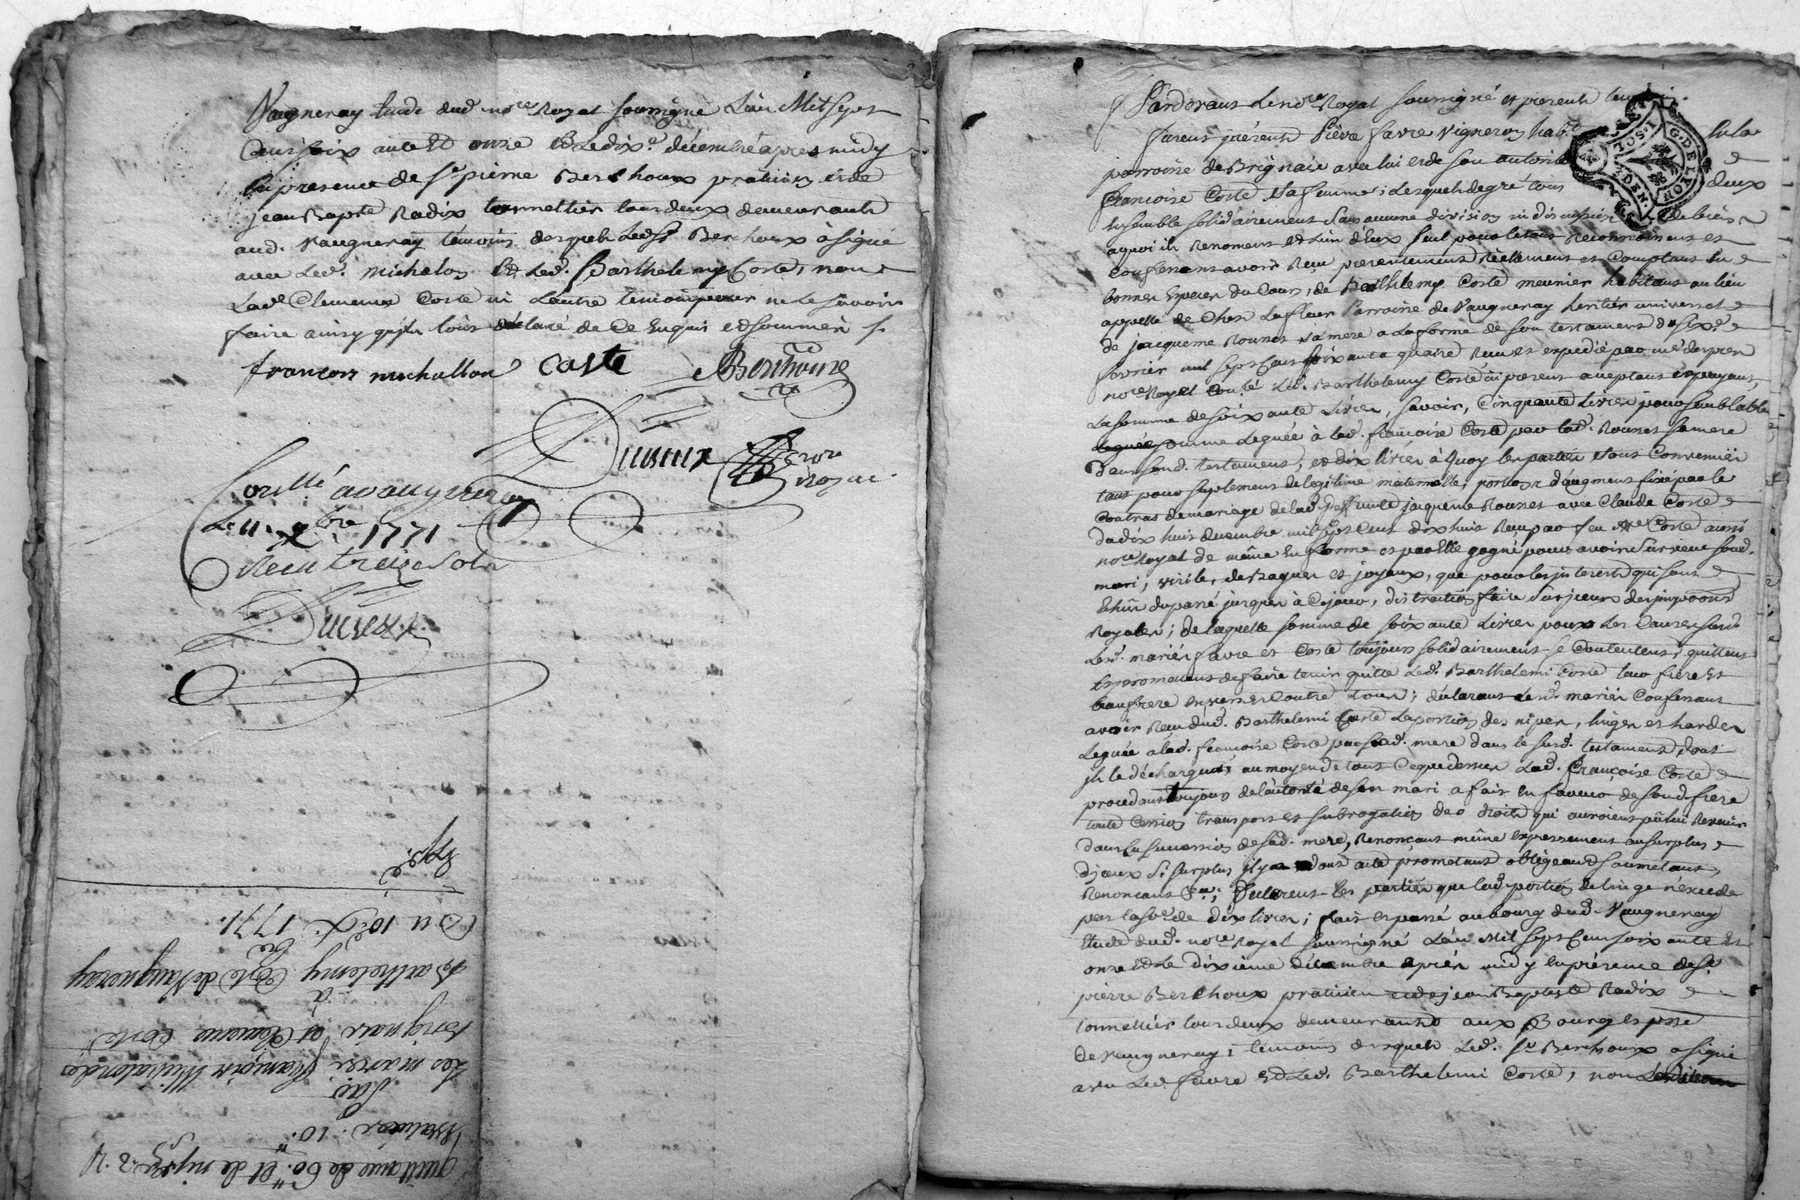 Vaugneray Etude dud. no.re Royal soussigné L'an Mil sept
Cent soix ante Et onze Et Le dix.e décembre après midy
En presence de S.r pierre Berthoux praticien et de
jean Bap.te Radix tonnellier tous deux demeurants
aud. Vaugneray témoins desquels Led. S.r Berthoux à signé
avec Led. Michalon Et Led. Barthelemy Coste, non
Lad. Clemence Coste ni L'autre temoin pour ne le savoir
faire ainsy qu'ils l'ont déclaré de Ce Enquis et sommés /.
francois michallon Caste Berthoux
Contllé a vaugneray
Le 11. X.bre 1771
Recu treize sols
quittance de 60.tt et de nipes
valeur 10.tt
Par
Les mariés françois Michalon de
brignais et Clemence Coste
à
Barthelemy Coste de Vaugneray
Du 10.e X.bre 1771.
Exp.é
Pardevant Le no.re Royal soussigné et presents temoins
furent présents Pierre favre vigneron hab.t en la
parroisse de Brignais avec lui et de son autorité
françoise Coste sa femme; Lesquels de gré tous deux
Ensemble solidairement sans aucune division ni discussion de biens
aquoi ils Renoncent et L'un d'Eux seul pour le tout Reconnoissent et
Confessent avoir Reçu presentement Réellement et Comptant en
bonnes Especes du Cours, de Barthelemy Coste meunier habitant au lieu
appellé de Chez Lafleur Parroisse de Vaugneray heritier universel
de jacqueme Rounet sa mere a La forme de son testament du six.e
fevrier mil sept Cent soix ante quatre Reçu et expedié par
no.re Royal Led. Barthelemy Coste ici present acceptant et payant,
La somme de soix ante Livres, savoir, Cinquante Livres pour semblable
somme Leguée à lad. françoise Coste par lad. Rounet sa mere
dans sond. testament, et dix livres à quoy les parties sont Convenües
tant pour suplement de legitime maternelle, portion d'augment fixé par le
Contrat de mariage de lad. deffunte jaqueme Rounet avec Claude Coste
du dix huit decembre mil sept Cent dix huit Reçu par feu M.e Coste aussi
no.re Royal de même En forme et par Elle gagné pour avoir survecu sond.
mari, virile, de Bagues et joyaux, que pour les interests qui sont
Echûs du passé jusques à Ce jour, distraction faite sur jceux des impositions
Royales; de laquelle somme de soix ante Livres pour Les Causes susd.
Lesd. mariés favre et Coste toujours solidairement se Contentent, quittent
Et promettent de faire tenir quitte Led. Barthelemi Coste leur frere et
beaufrere envers et Contre tous; déclarant Lesd. mariés Confessant
avoir Reçu dud. Barthelemi Coste La portion des nipes, linges et hardes
Leguée à lad. françoise Coste par sad. mere dans le susd. testament, dont
ils le déchargent au moyen de tout Ce que dessus Lad. françoise Coste
procedant toujours de l'autorité de son mari a fait En faveur de sond. frere
toute Cession transport et subrogation des droits qui auroient pû lui Revenir
dans la succession de sad. mere, Renonçant même expressement au surplus
d'jceux si surplus il y a dont acte promettant obligeant soumettant
Renonçant &a; Declarent les parties que lad. portion de linge n'excede
pas la so.e de dix livres; fait et passé au bourg dud. Vaugneray
Etude dud. no.re Royal soussigné L'an Mil sept Cent soix ante et
onze Et Le dixième décembre après midy En présence de S.r
pierre Berthoux praticien et de jean Baptiste Radix
tonnellier tous deux demeurants aux Bourg et p.sse
de Vaugneray; témoins desquels Led. S.r Berthoux a signé
avec Led. favre Et Led. Barthelemi Coste, non